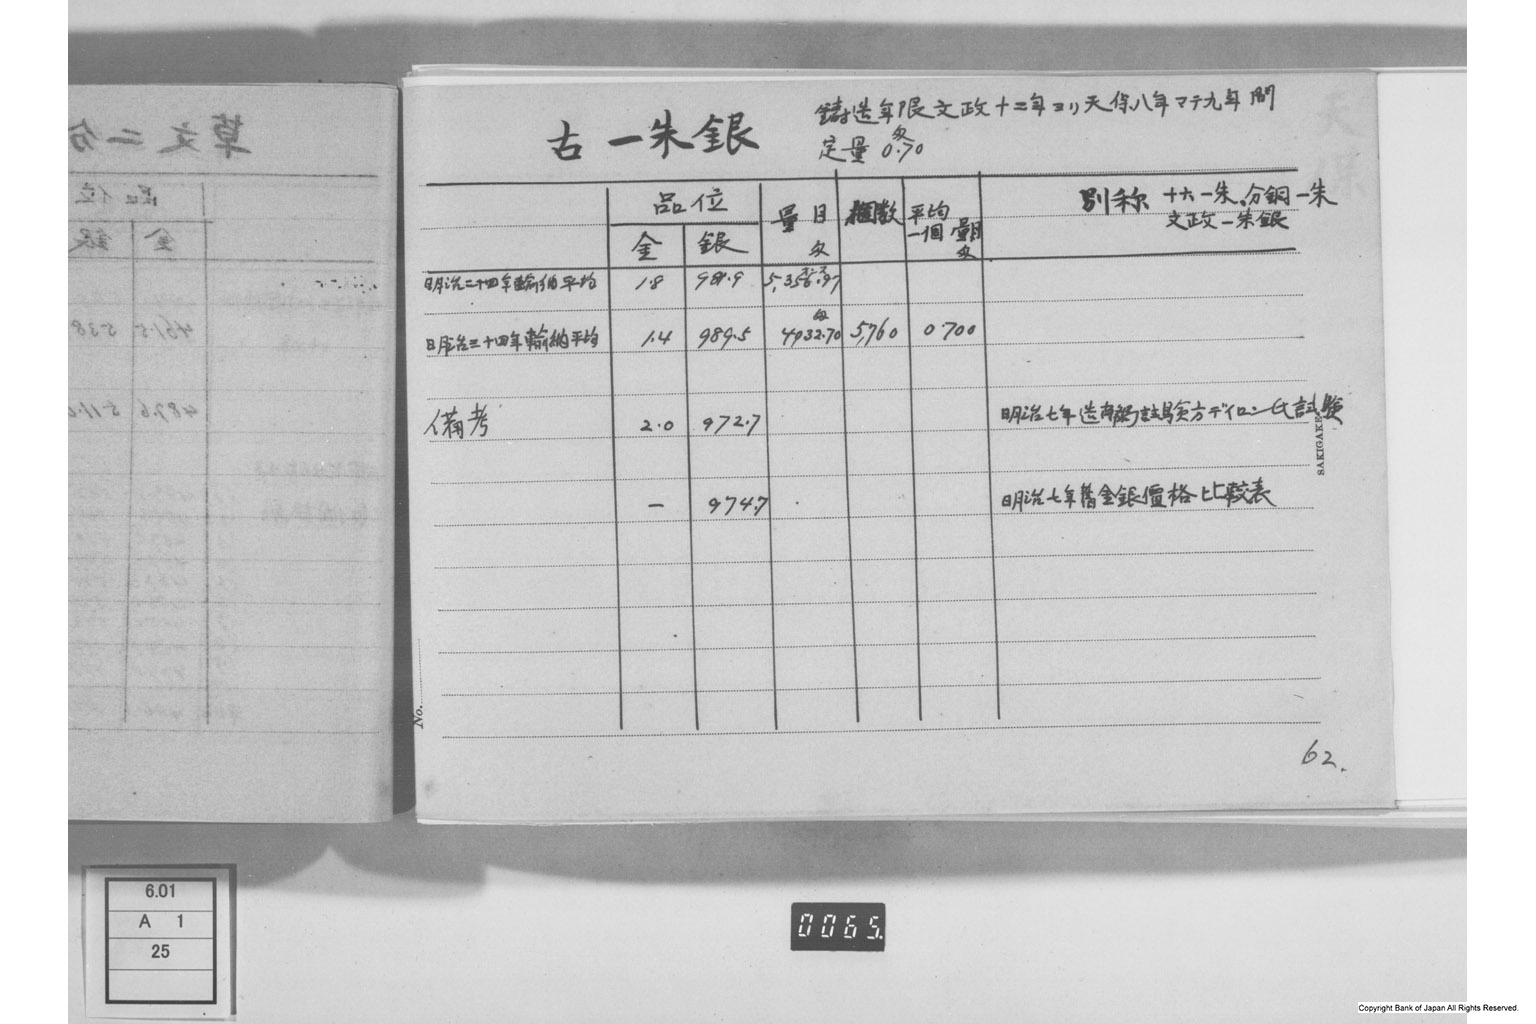 古一朱銀
鋳造年限文政十二年ヨリ天保八年マテ九年間
定量 0.70匁
品位
金 銀
量目
匁
個数
平均
一個量目
匁
別称 十六一朱、分銅一朱
文政一朱銀
明治二十四年輸納平均 1.8 989.9 5,356.97
明治三十四年輸納平均 1.4 989.5 4932.70匁 5,760 0.700
備考 2.0 972.7 明治七年造幣局試験方デイロン氏試験
— 974.7 明治七年旧金銀價格比較表
SAKIGAKE
No.
62.
草文二分
品位
金 銀
461.5 538
487.6 511.
6.01
A 1
25
0065.
Copyright Bank of Japan All Rights Reserved.